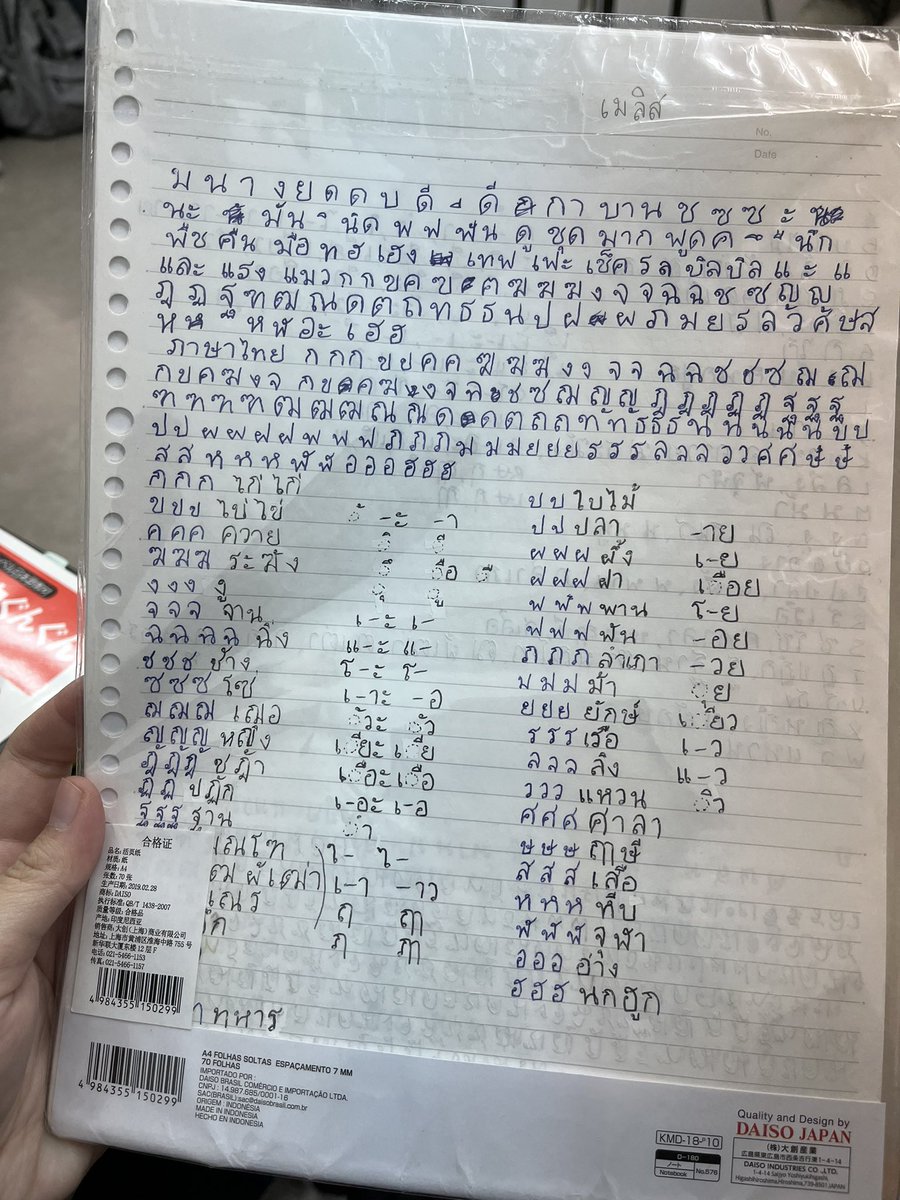 เมลิส
No.
Date
มนางยดดบดี - ดีกาบานซซซะ
นะ มัน ึ นิด พฟ ฟัน ดู ชุด มาก พูดค ึ ื นึก
พืช คืน มือ ทฮ เฮง เทฟ เฟะ เช็ค รล บิลบิล แะ แ
และ แรง แมวกกขคขฅฆฆฆงจจฉฉชซญญ
ฎฏฐฑฒณดตถทธธนปผผภมยรลวศษส
หหฬอะ เฮฮ
ภาษาไทย กกกขขคคฆฆฆงงจจฉฉชชซฌฌ
ฑฑฑฑฒฒฒณณดดตถถททธธธนนนนนบบ
ปปผผผผพพพภภภมมมยยยรรรลลลววศศษษ
สสหหหฬฬอออฮฮฮ
กกก ไก่ไก่
ขขข ไข่ไข่ ั -ะ -า
คคค ควาย ิ ี
ฆฆฆ ระฆัง ึ ือ ื
งงง งู ุ ู
จจจ จาน เ-ะ เ-
ฉฉฉฉ ฉิ่ง แ-ะ แ-
ชชช ช้าง โ-ะ โ-
ซซซ โซ่ เ-าะ -อ
ฌฌฌ เฌอ ัวะ ัว
ญญญ หญิง เียะ เีย
ฎฎฎ ชฎา เือะ เือ
ฏฏ ปฏัก เ-อะ เ-อ
ฐฐฐ ฐาน ำ
ณโฑ ใ- ไ-
ฒ ผู้เฒ่า เ-า -าว
เณร ฤ ฤๅ
ภ ภๅ
ทหาร
บบ ใบไม้
ปปปลา -าย
ผผผ ผึ้ง เ-ย
ฝฝฝ ฝา เือย
พพพ พาน โ-ย
ฟฟฟ ฟัน -อย
ภภภ สำเภา -วย
มมม ม้า ุย
ยยย ยักษ์ เียว
รรร เรือ เ-ว
ลลล ลิง แ-ว
ววว แหวน ิว
ศศศ ศาลา
ษษษ ฤๅษี
สสส เสือ
หหห หีบ
ฬฬฬ จุฬา
อออ อ่าง
ฮฮฮ นกฮูก
合格证
品名:活页纸
材质:纸
规格:A4
张数:70张
生产日期:2019.02.28
商标:DAISO
执行标准:QB/T 1438-2007
质量等级:合格品
产地:印度尼西亚
销售商:大创(上海)商业有限公司
地址:上海市黄浦区淮海中路755号
新华联大厦东楼12层F
电话:021-5466-1153
传真:021-5466-1157
4 984355 150299
4 984355 150299
A4 FOLHAS SOLTAS ESPAÇAMENTO 7 MM
70 FOLHAS
IMPORTADO POR :
DAISO BRASIL COMÉRCIO E IMPORTAÇÃO LTDA.
CNPJ : 14.987.685/0001-16
SAC(BRASIL):sac@daisobrasil.com.br
ORIGEM : INDONÉSIA
MADE IN INDONESIA
HECHO EN INDONESIA
KMD-18-P10
D-180
ノート
Notebook No.576
Quality and Design by
DAISO JAPAN
(株)大創産業
広島県東広島市西条吉行東1-4-14
DAISO INDUSTRIES CO.,LTD.
1-4-14 Saijyo Yoshiyukihigashi,
Higashihiroshima,Hiroshima,739-8501 JAPAN